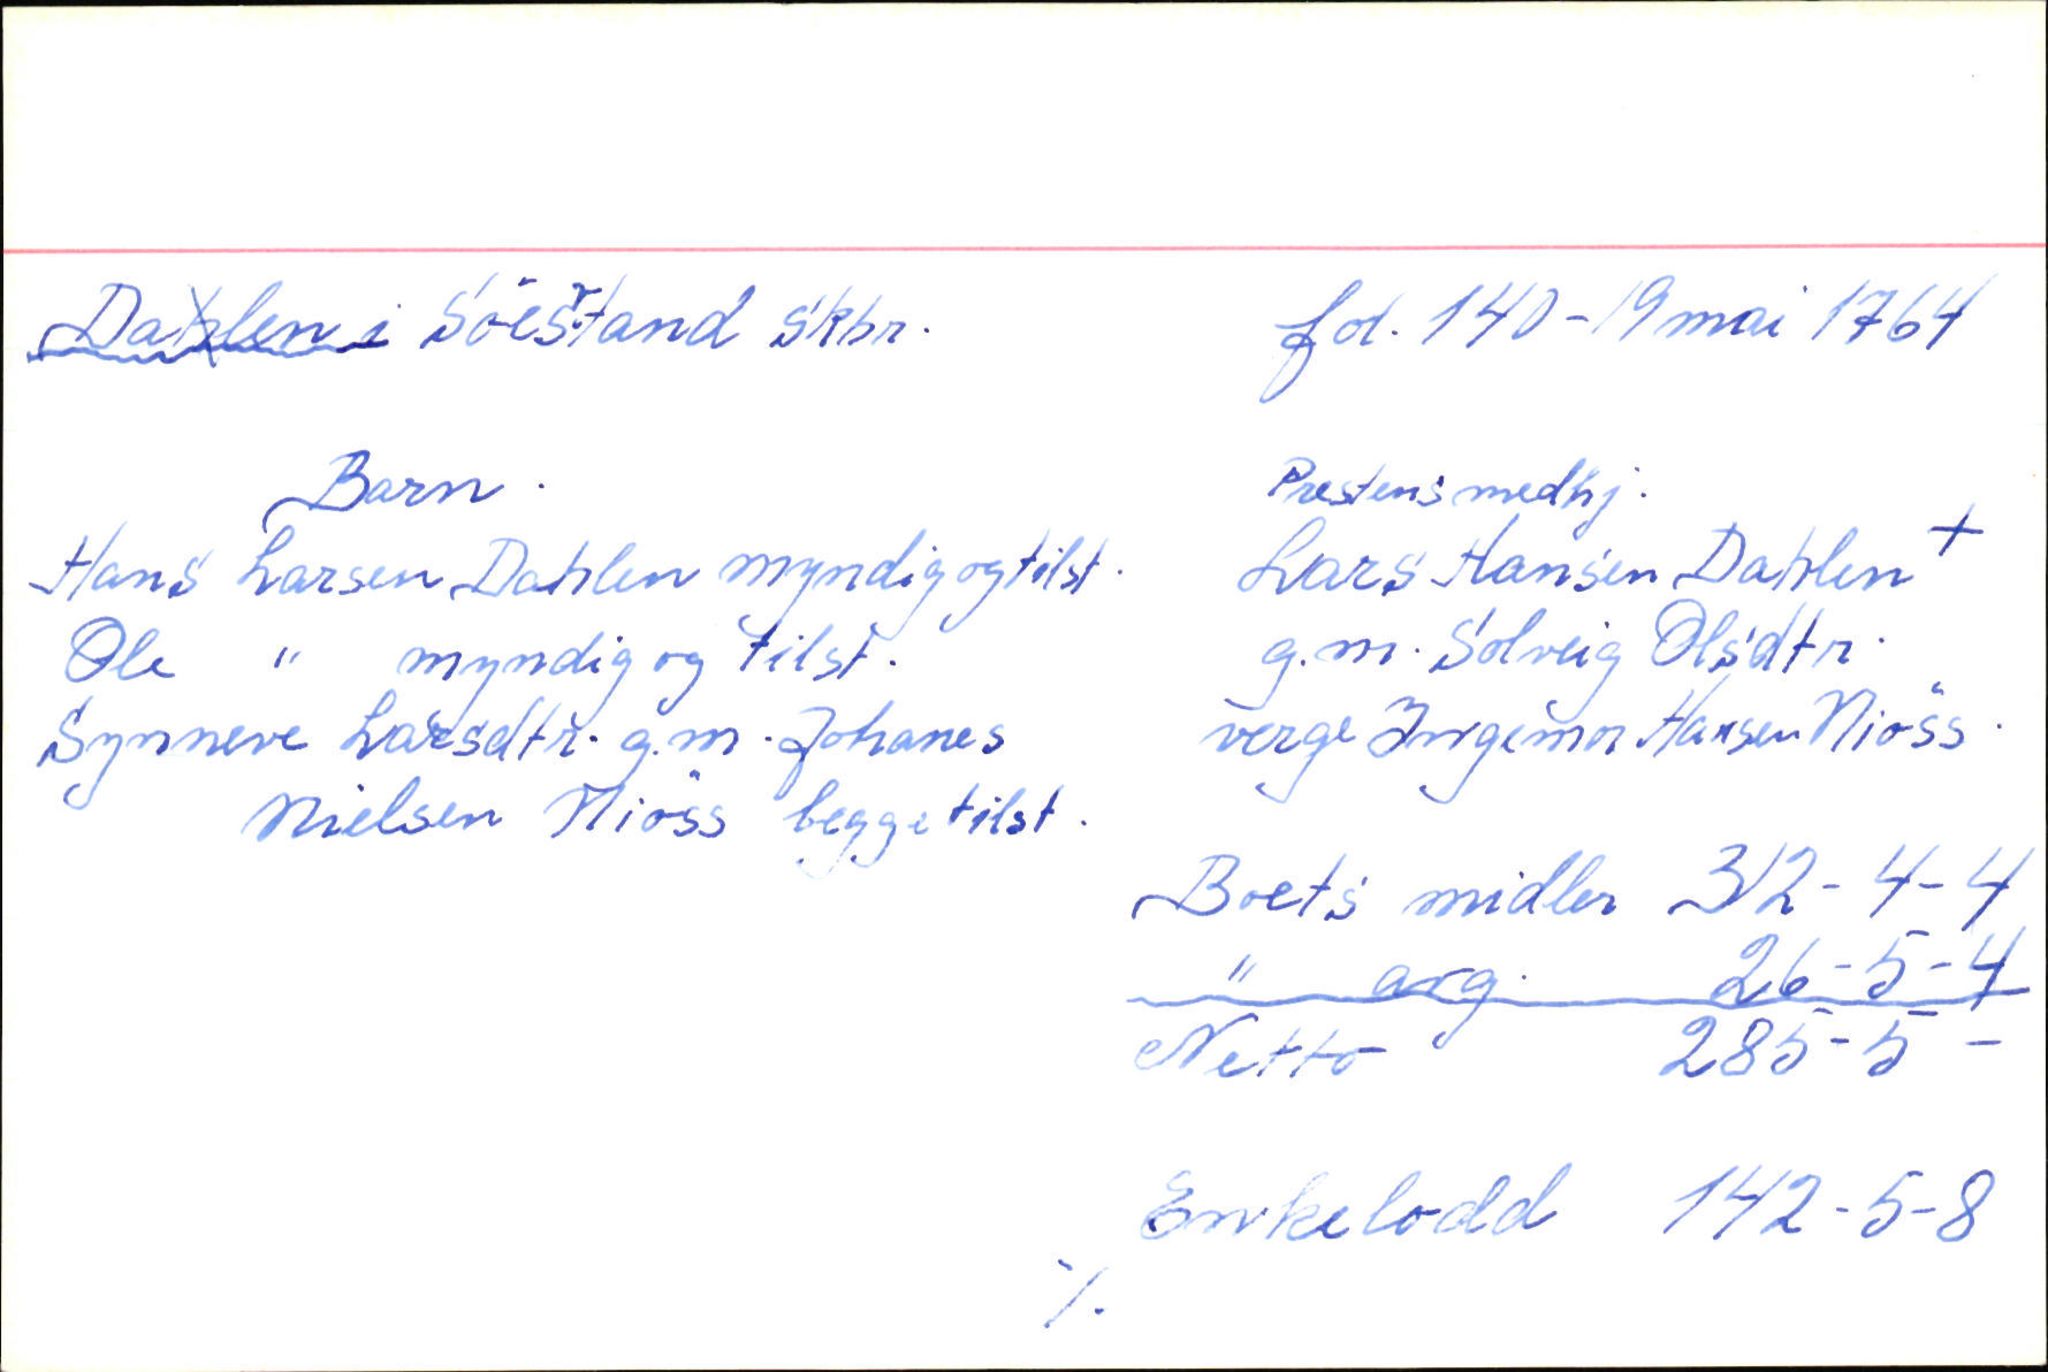 Dahlen i Söestrand Skbr.
fol. 140 - 19 mai 1764
Barn.
Hans Larsen Dahlen myndig og tilst.
Ole " myndig og tilst.
Synneve Larsdtr. g.m. Johanes
Nielsen Niöss begge tilst.
Prestens medhj.
Lars Hansen Dahlen +
g.m. Solveig Olsdtr.
verge Ingemor Hansen Niöss.
Boets midler 312-4-4
" avg. 26-5-4
Netto 285-5 -
Enkelodd 142-5-8
./.